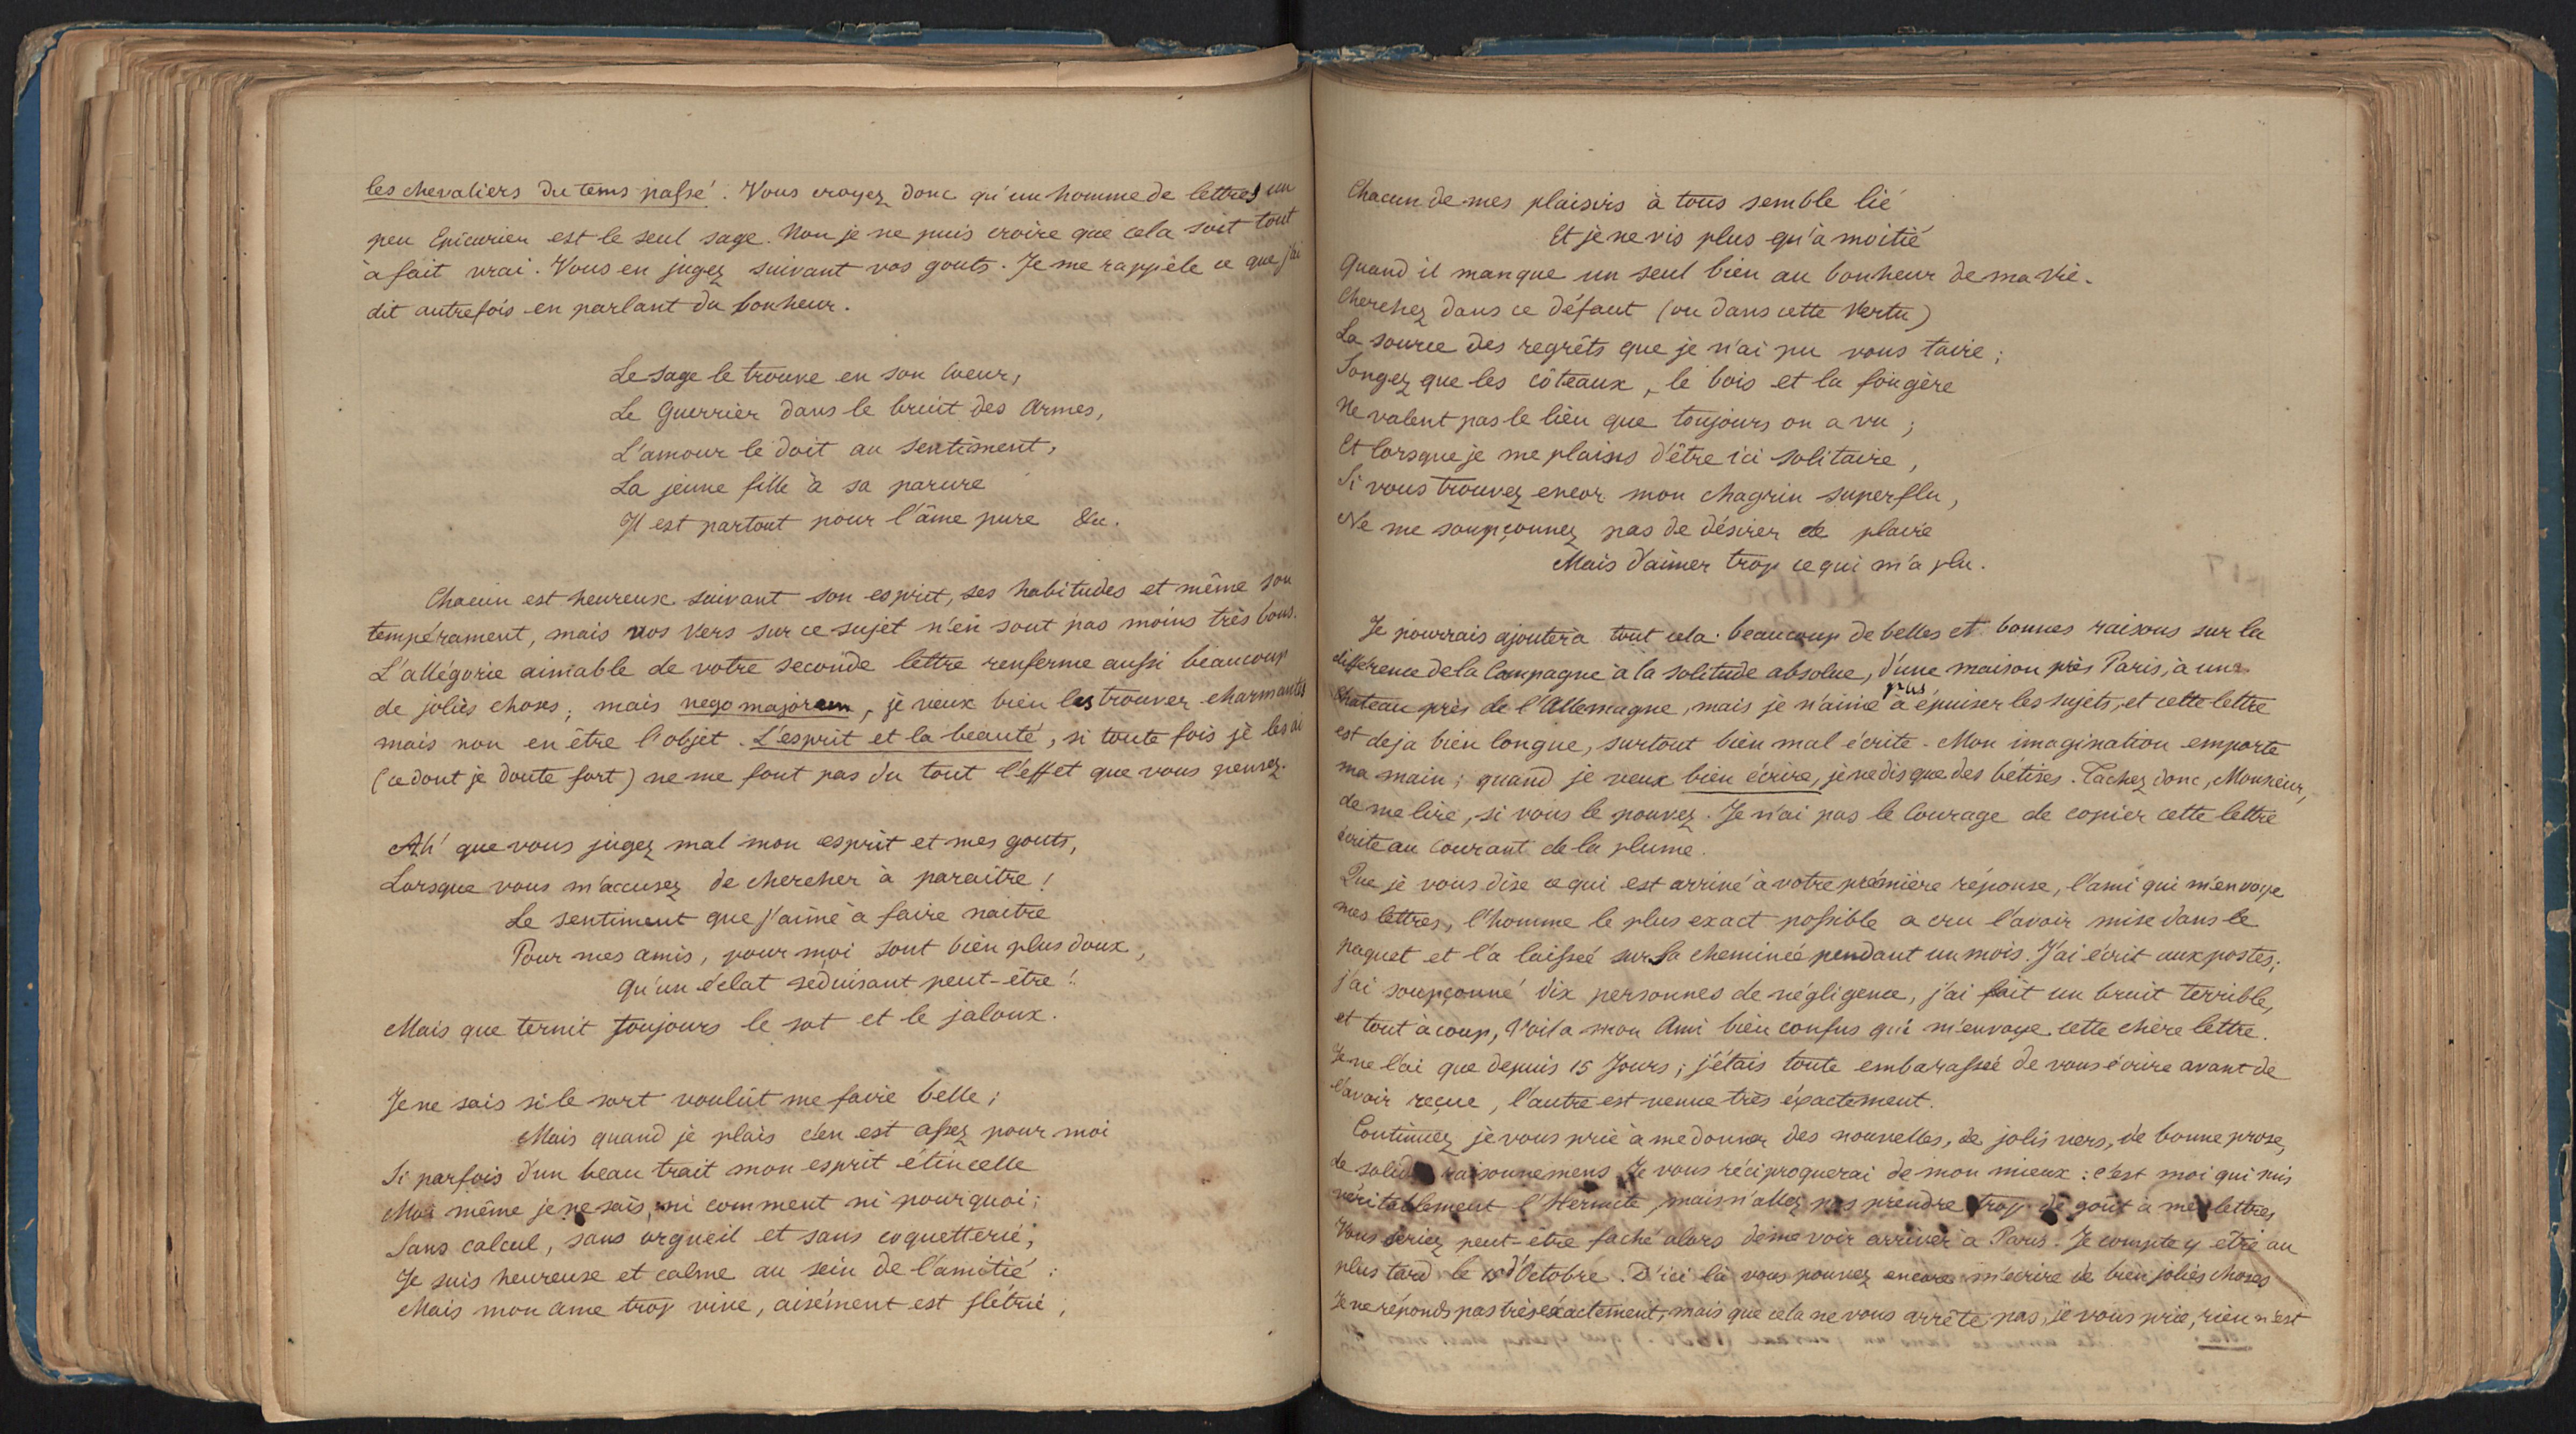 les chevaliers du tems passé. Vous croyez donc qu'un homme de lettres un
peu Epicurien est le seul sage. Non je ne puis croire que cela soit tout
à fait vrai. Vous en jugez suivant vos gouts. Je me rappèle ce que j'ai
dit autrefois en parlant du bonheur.
Le Sage le trouve en son Coeur,
Le Guerrier dans le bruit des Armes,
L'amour le doit au sentiment,
La jeune fille à sa parure
Il est partout pour l'âme pure &c.
Chacun est heureux suivant son esprit, ses habitudes et même son
tempérament, mais vos vers sur ce sujet n'en sont pas moins très bons.
L'allégorie aimable de votre seconde lettre renferme aussi beaucoup
de jolies choses; mais nego majorem, je veux bien les trouver charmantes
mais non en être l'objet. L'esprit et la beauté, si toute fois je les ai
(ce dont je doute fort) ne me font pas du tout l'effet que vous pensez.
Ah! que vous jugez mal mon esprit et mes gouts,
Lorsque vous m'accusez de chercher à paraitre!
Le sentiment que j'aime à faire naitre
Pour mes amis, pour moi sont bien plus doux,
Qu'un éclat seduisant peut-être!
Mais que ternit toujours le sot et le jaloux.
Je ne sais si le sort voulût me faire belle;
Mais quand je plais c'en est assez pour moi
Si parfois d'un beau trait mon esprit étincelle
Moi même je ne sais, ni comment ni pourquoi;
Sans calcul, sans orgueil et sans coquetterie;
Je suis heureuse et calme au sein de l'amitié:
Mais mon ame trop vive, aisément est flétrie;
Chacun de mes plaisirs à tous semble lié
Et je ne vis plus qu'à moitié
Quand il manque un seul bien au bonheur de ma vie.
Cherchez dans ce défaut (ou dans cette vertu)
La source des regrêts que je n'ai pu vous taire;
Songez que les côteaux, le bois et la fougère
Ne valent pas le lieu que toujours on a vu;
Et lorsque je me plains d'être ici solitaire,
Si vous trouvez encor mon chagrin superflu,
Ne me soupçonnez pas de désirer de plaire
Mais d'aimer trop ce qui m'a plu.
Je pourrais ajouter à tout cela beaucoup de belles et bonnes raisons sur la
différence de la Campagne à la solitude absolue, d'une maison près Paris, à un
Chateau près de l'Allemagne, mais je n'aime pas à épuiser les sujets, et cette lettre
est deja bien longue, surtout bien mal écrite. Mon imagination emporte
ma main; quand je veux bien écrire, je ne dis que des bétises. Tachez donc, Monsieur,
de me lire, si vous le pouvez. Je n'ai pas le Courage de copier cette lettre
écrite au courant de la plume.
Que je vous dise ce qui est arrivé à votre première réponse, l'ami qui m'envoye
mes lettres, l'homme le plus exact possible a cru l'avoir mise dans le
paquet et l'a laissée sur la cheminée pendant un mois. J'ai écrit aux postes;
j'ai soupçonné dix personnes de négligence, j'ai fait un bruit terrible,
et tout à coup, Voila mon Ami bien confus qui m'envoye cette chère lettre.
Je ne l'ai que depuis 15 Jours; j'étais toute embarassée de vous écrire avant de
l'avoir reçue, l'autre est venue très éxactement.
Continuez je vous prie à me donner des nouvelles, de jolis vers, de bonne prose,
de solides raisonnemens. Je vous réciproquerai de mon mieux: c'est moi qui suis
véritablement l'Hermite, mais n'allez pas prendre trop de goût à mes lettres
Vous seriez peut-être faché alors de me voir arriver à Paris. Je compte y etre au
plus tard le 15 d'Octobre. D'ici là vous pouvez encore m'écrire de bien jolies choses
Je ne réponds pas très éxactement, mais que cela ne vous arrête pas, je vous prie, rien n'est